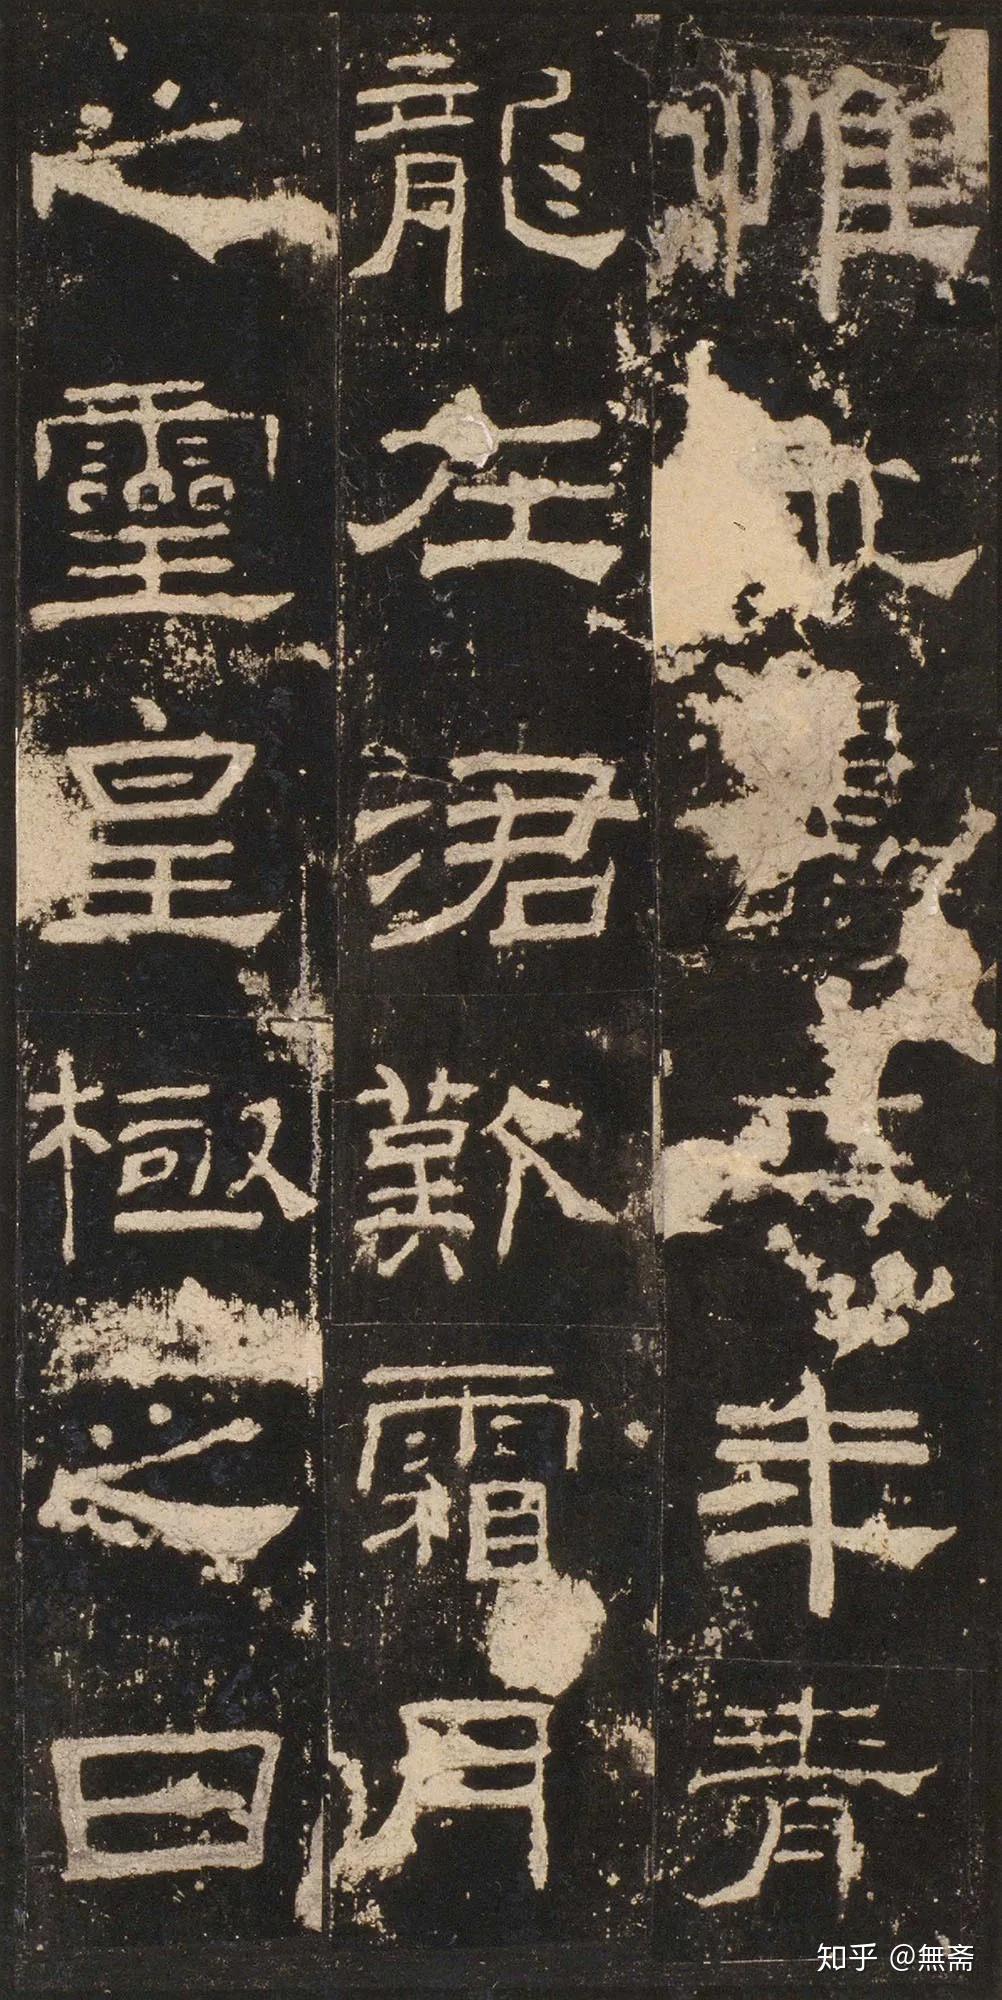 惟永壽二年青
龍在涒歎霜月
之靈皇極之日
知乎 @無斋